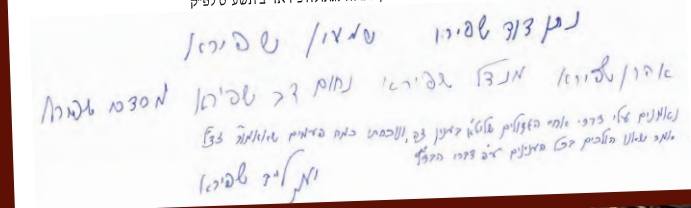 נתן דוד שפירא שמעון נ שפירא
אהרן שפירא מנדל שפירא נחום דב שפירא שפירא
נאמנים עלי דברי אחי הגדולים שליט"א בענין זה, ונוכחתי כמה פעמים שאאמו"ר זצ"ל
אמר שאנו הולכים בכל הענינים ע"פ דברי הבד"ץ
לייב שפירא